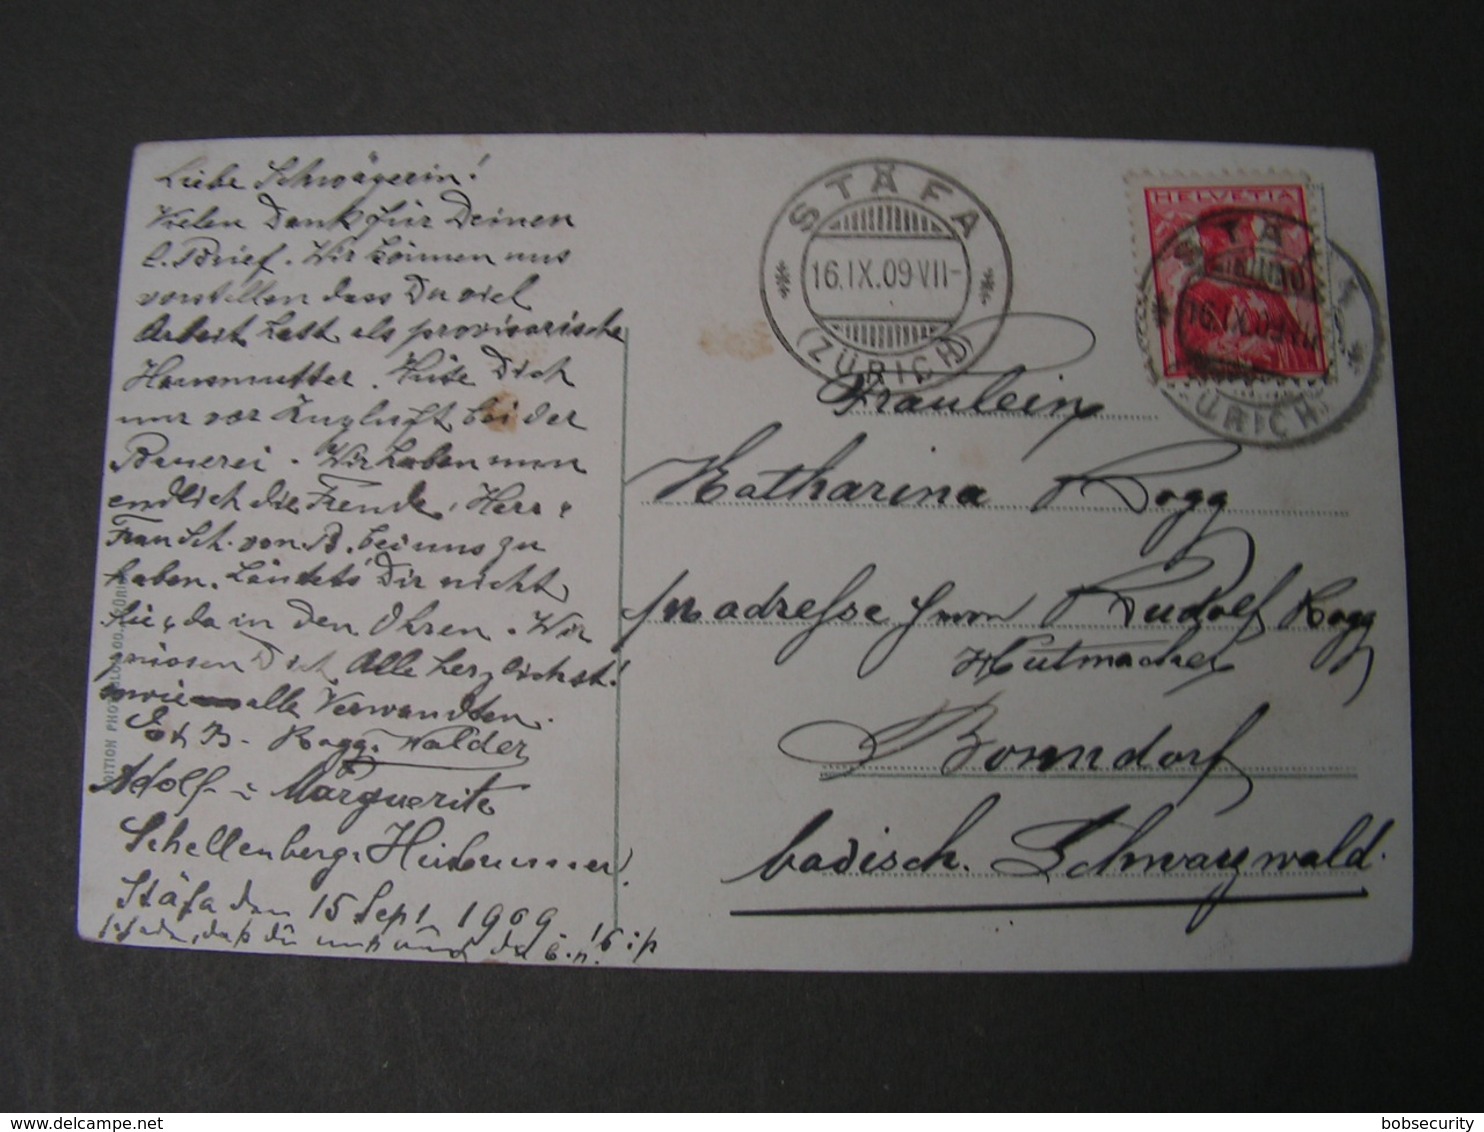 Liebe Schwägerin!
Vielen Dank für Deinen
l. Brief. Wir können uns
vorstellen dass Du viel
Arbeit hast als provisorische
Hausmutter. Hüte Dich
nur vor Zugluft bei der
Bauerei. Wir haben nun
endlich die Freude, Herr u
Frau Sch. von B. bei uns zu
haben. Läutets Dir nicht
hie u. da in den Ohren. Wir
grüssen Dich Alle herzlichst!
sowie alle Verwandten.
E & B. Rogg-Walder
Adolf u Marguerite
Schellenberg-
Stäfa den 15 Sept 1909
Schade, daß du nicht
EDITION PHOTOGLOB CO. ZÜRICH
STÄFA
16.IX.09.VII-
(ZÜRICH)
HELVETIA
STÄFA
16.IX.09.VII
(ZÜRICH)
Fräulein
Katharina Rogg
pr adresse Herrn Rudolf Rogg
Hutmacher
Bonndorf
badisch. Schwarzwald.
bobsecurity